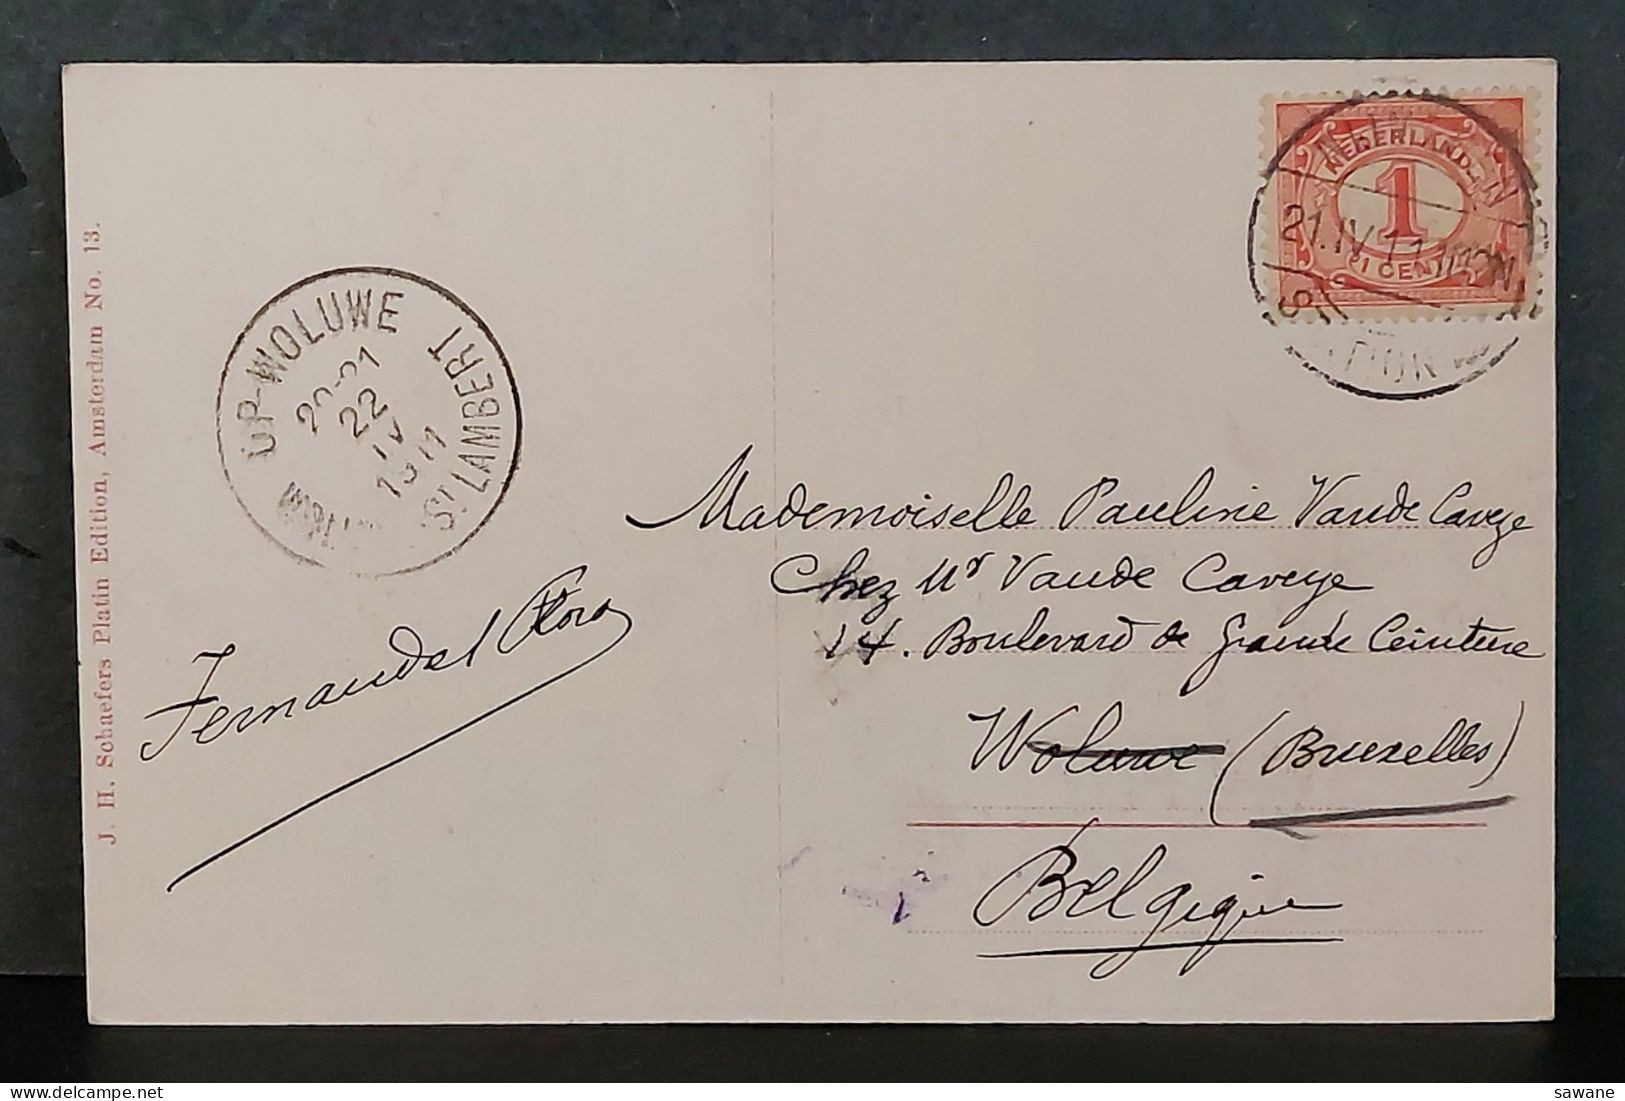 J. H. Schaefers Platin Edition, Amsterdam No. 13.
UP-WOLUWE
ST LAMBERT
20-21
22
IV
1911
NEDERLAND
1
1 CENT
21.IV.11
Mademoiselle Pauline Vande Caveye
Chez Mr Vande Caveye
14. Boulevard de Grande Ceinture
Woluwe (Bruxelles)
Belgique
Fernandel Flora
sawane